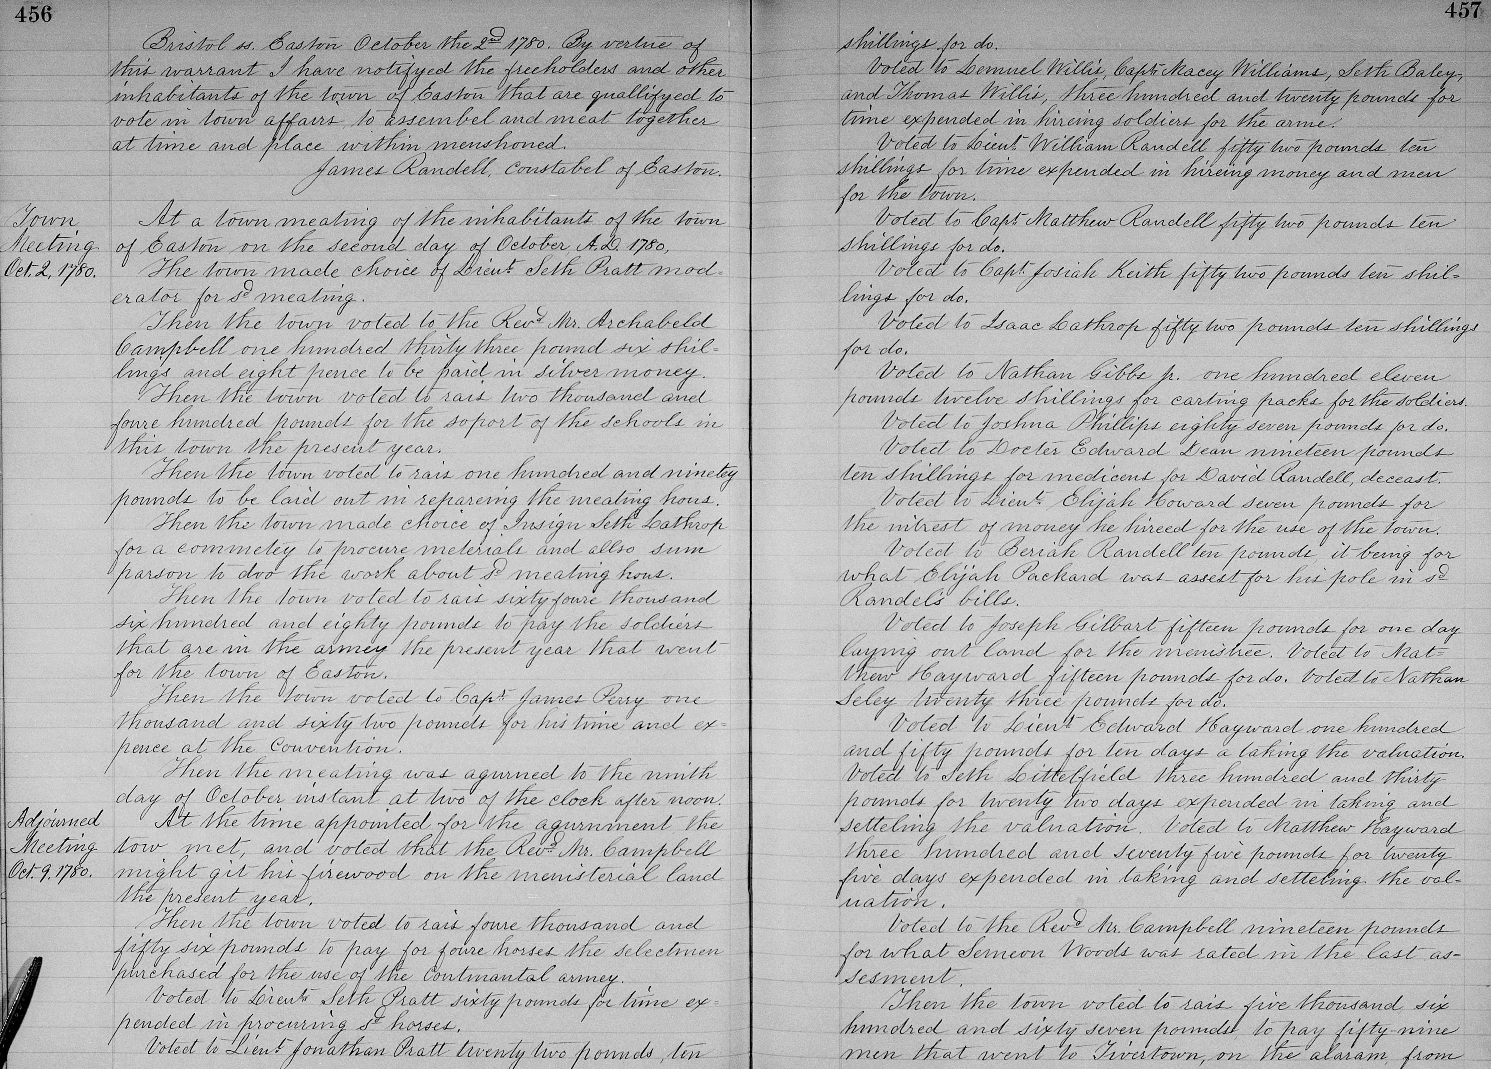 456
Bristol ss. Easton October the 2nd 1780. By vertue of
this warrant I have notifyed the freeholders and other
inhabitants of the town of Easton that are quallifyed to
vote in town affairs to assembel and meat together
at time and place within menshoned.
James Randell, constabel of Easton.
Town
Meeting
Oct. 2, 1780.
At a town meating of the inhabitants of the town
of Easton on the second day of October A.D. 1780,
The town made choice of Lieut Seth Pratt mod=
erator for sd meating.
Then the town voted to the Revd Mr. Archabeld
Campbell one hundred thirty three pound six shil=
lings and eight pence to be paid in silver money.
Then the town voted to rais two thousand and
foure hundred pounds for the soport of the schools in
this town the present year.
Then the town voted to rais one hundred and ninetey
pounds to be laid out in repareing the meating hous.
Then the town made choice of Insign Seth Lathrop
for a commetey to procure meterials and allso sum
parson to doo the work about sd meating hous.
Then the town voted to rais sixty foure thousand
six hundred and eighty pounds to pay the soldiers
that are in the armey the present year that went
for the town of Easton.
Then the town voted to Capt James Perry one
thousand and sixty two pounds for his time and ex=
pence at the Convention.
Then the meating was agurned to the ninth
day of October instant at two of the clock after noon.
Adjourned
Meeting
Oct. 9. 1780.
At the time appointed for the agurnment the
tow met, and voted that the Revd Mr. Campbell
might git his firewood on the menisterial land
the present year.
Then the town voted to rais foure thousand and
fifty six pounds to pay for foure horses the selectmen
purchased for the use of the Continantal armey.
Voted to Lieut Seth Pratt sixty pounds for time ex=
pended in procuring sd horses.
Voted to Lieut Jonathan Pratt twenty two pounds, ten
457
shillings for do.
Voted to Lemuel Willis, Capt Macey Williams, Seth Baley,
and Thomas Willis, three hundred and twenty pounds for
time expended in hireing soldiers for the arme.
Voted to Lieut William Randell fifty two pounds ten
shillings for time expended in hireing money and men
for the town.
Voted to Capt Matthew Randell fifty two pounds ten
shillings for do.
Voted to Capt Josiah Keith fifty two pounds ten shil=
lings for do.
Voted to Isaac Lathrop fifty two pounds ten shillings
for do.
Voted to Nathan Gibbs jr. one hundred eleven
pounds twelve shillings for carting packs for the soldiers.
Voted to Joshua Phillips eighty seven pounds for do.
Voted to Docter Edward Dean nineteen pounds
ten shillings for medicens for David Randell, deceast.
Voted to Lieut Elijah Howard seven pounds for
the intrest of money he hireed for the use of the town.
Voted to Beriah Randell ten pounds it being for
what Elijah Packard was assest for his pole in sd
Randel's bills.
Voted to Joseph Gilbart fifteen pounds for one day
laying out land for the menistree. Voted to Mat=
thew Hayward fifteen pounds for do. Voted to Nathan
Seley twenty three pounds for do.
Voted to Lieut Edward Hayward one hundred
and fifty pounds for ten days a taking the valuation.
Voted to Seth Littelfield three hundred and thirty
pounds for twenty two days expended in taking and
setteling the valuation. Voted to Matthew Hayward
three hundred and seventy five pounds for twenty
five days expended in taking and setteling the val=
uation.
Voted to the Revd Mr. Campbell nineteen pounds
for what Semeon Woods was rated in the last as=
sesment.
Then the town voted to rais five thousand six
hundred and sixty seven pounds to pay fifty-nine
men that went to Tivertown, on the alaram, from